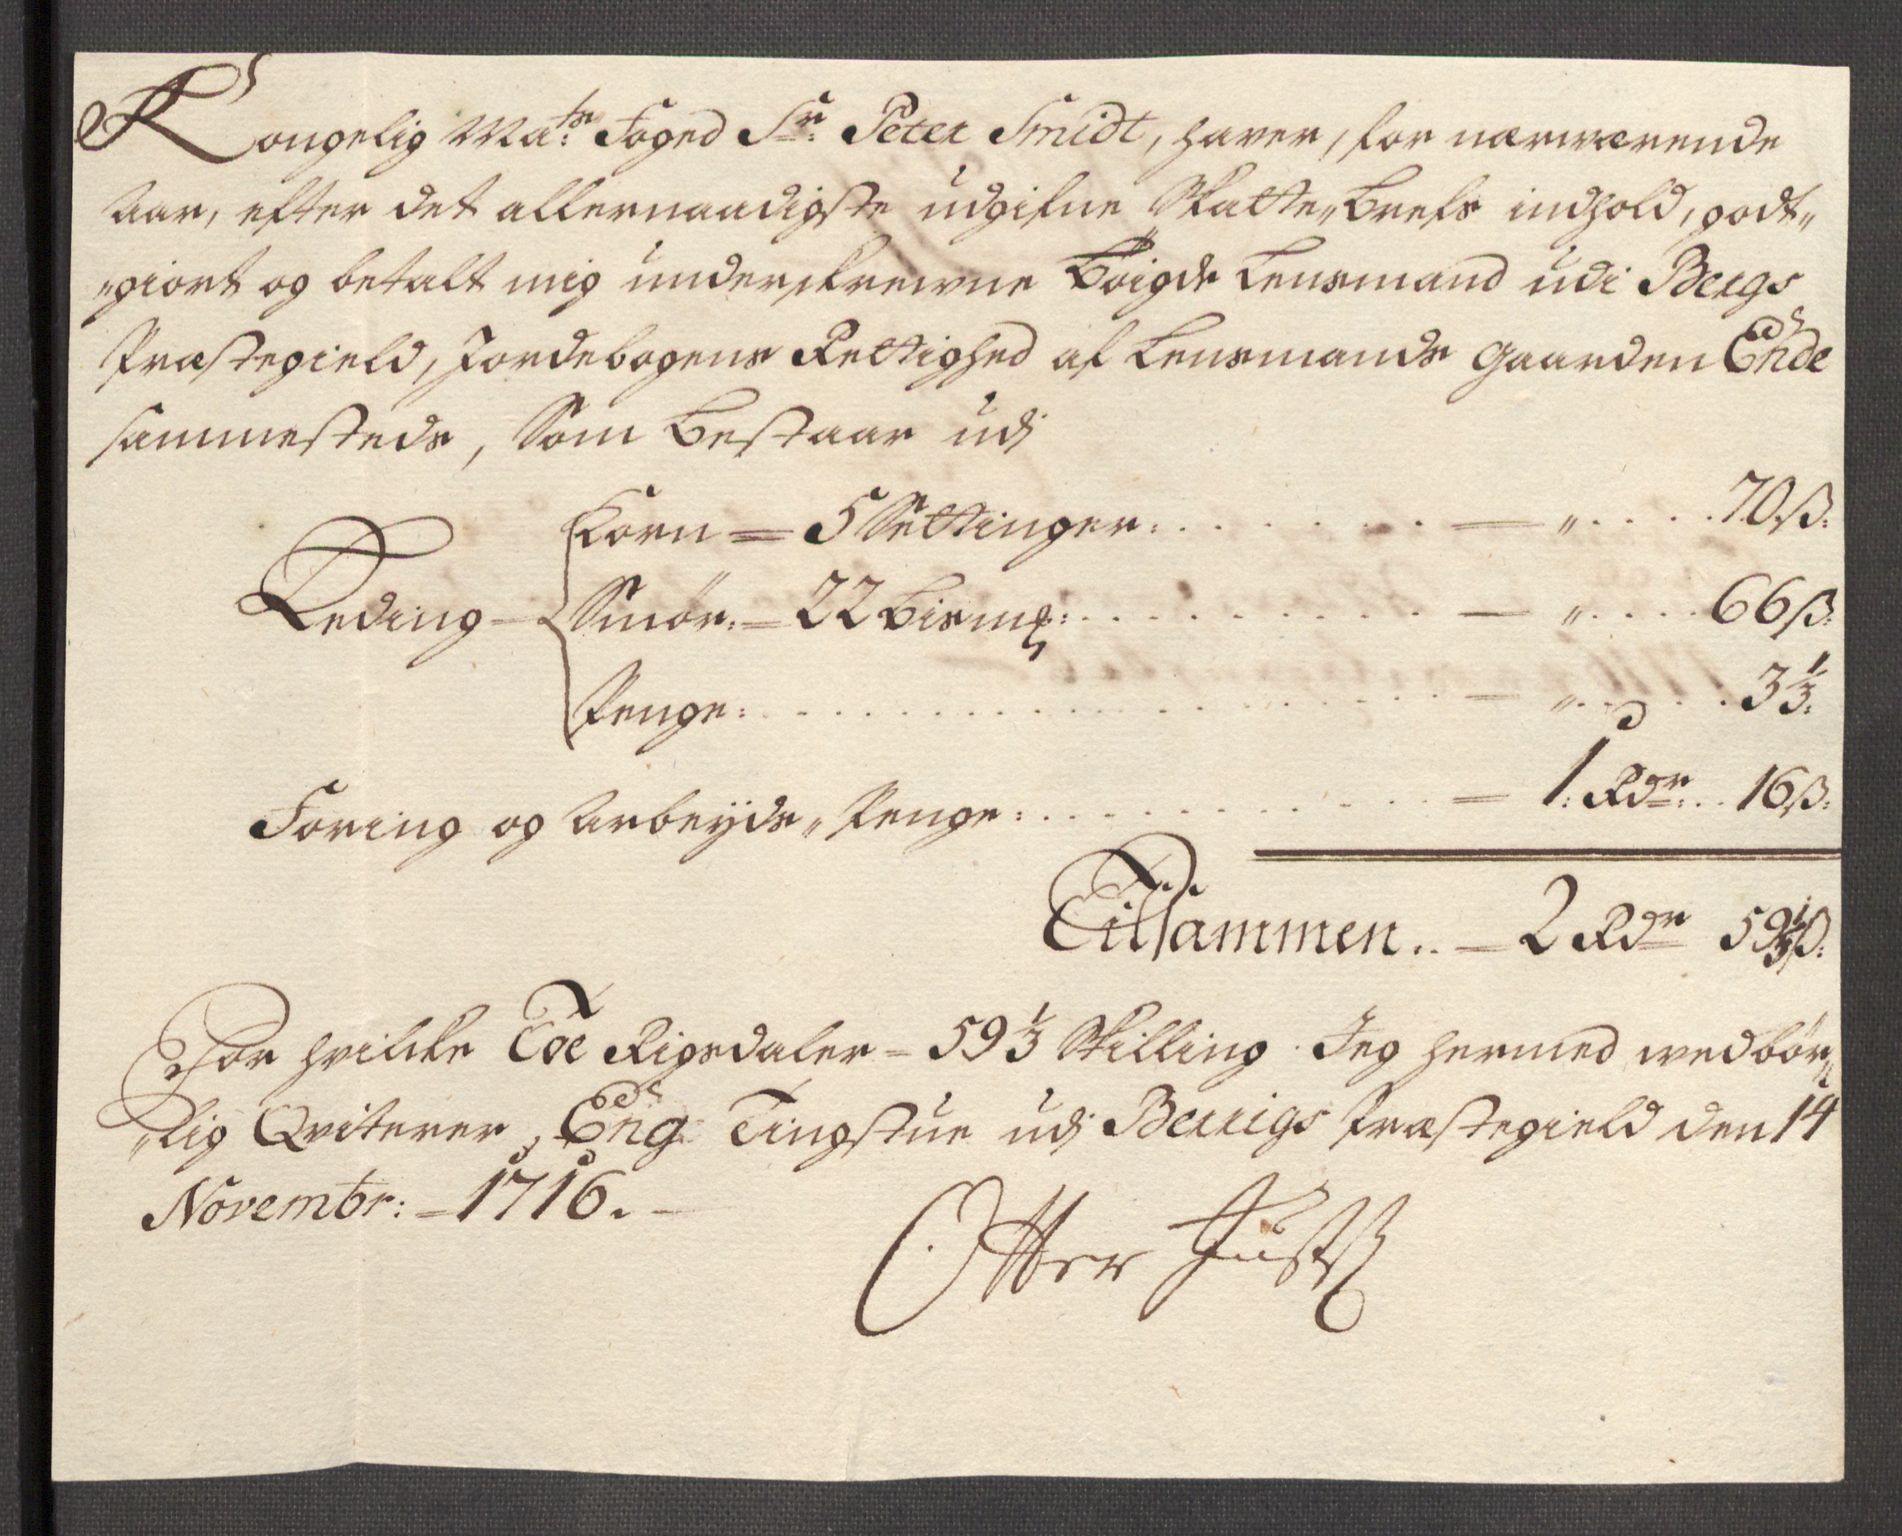 Kongelig Ma:ts Foged Sr: Peter Smidt, haver, for nærværende
Aar, efter det allernaadigste udgifne Skatte„Brefs indhold, godt„
„giort og betalt mig underskrewne Böigde Lensmand udi Bergs
Præstegield, Jordebogens Rettighed af Lensmands Gaarden Ende
sammesteds, Som Bestaar udj
Korn = 5 Settinger: — „ 70 ß:
Leding — Smör: = 22 Bismp: — „ 66 ß:
Penge: — „ 3 1/3:
Foring og Arbeyds„Penge: = 1: Rdr: 16 ß:
Tilsammen.. = 2 Rdr 59 1/3 ß:
For hvilcke Toe Rigsdaler = 59 1/3 Skilling Jeg hermed wedbör„
„lig Qviterer, Eng Tingstue udj Berrigs Præstegield den 14
Novembr: = 1716. —
Otter